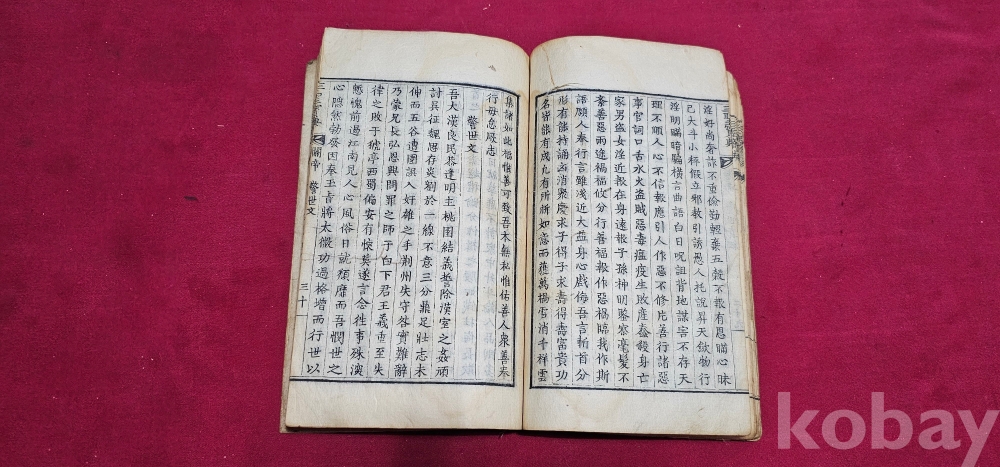 淫好尚奢詐不重儉勤輕棄五穀不報有恩瞞心昧
己大斗小秤假立邪教引誘愚人托說昇天斂物行
淫明瞞暗騙橫言曲語白日呪詛背地謀害不存天
理不順人心不信報應引人作惡不修片善行諸惡
事官詞口舌水火盜賊惡毒瘟疫生敗產蠢殺身亡
家男盜女淫近報在身遠報子孫神明鑒察毫髮不
紊善惡兩途禍福攸分行善福報作惡禍臨我作斯
語願人奉行言雖淺近大益身心戲侮吾言斬首分
形有能持誦凶消聚慶求子得子求壽得壽富貴功
名皆能有成凡有所祈如意而獲萬禍雪消千祥雲
集諸如此福惟善可致吾本無私惟佑善人衆善奉
行毋怠厥志
警世文
吾大漢良民恭逢明主桃園結義誓除漢室之姦頑
討吳征魏思存炎劉於一線不意三分鼎足壯志未
伸而五谷遭圍誤入奸雄之手荊州失守咎實難辭
乃蒙兄長弘恩興問罪之師于白下君王義重至失
律之敗于猇亭西蜀偏安有懷莫遂言念往事殊深
慙愧前過江南見人心風俗日就頹靡而吾憫世之
心然勃發因奉玉旨將太微功過格增而行世以
關帝 警世文 三十
kobay